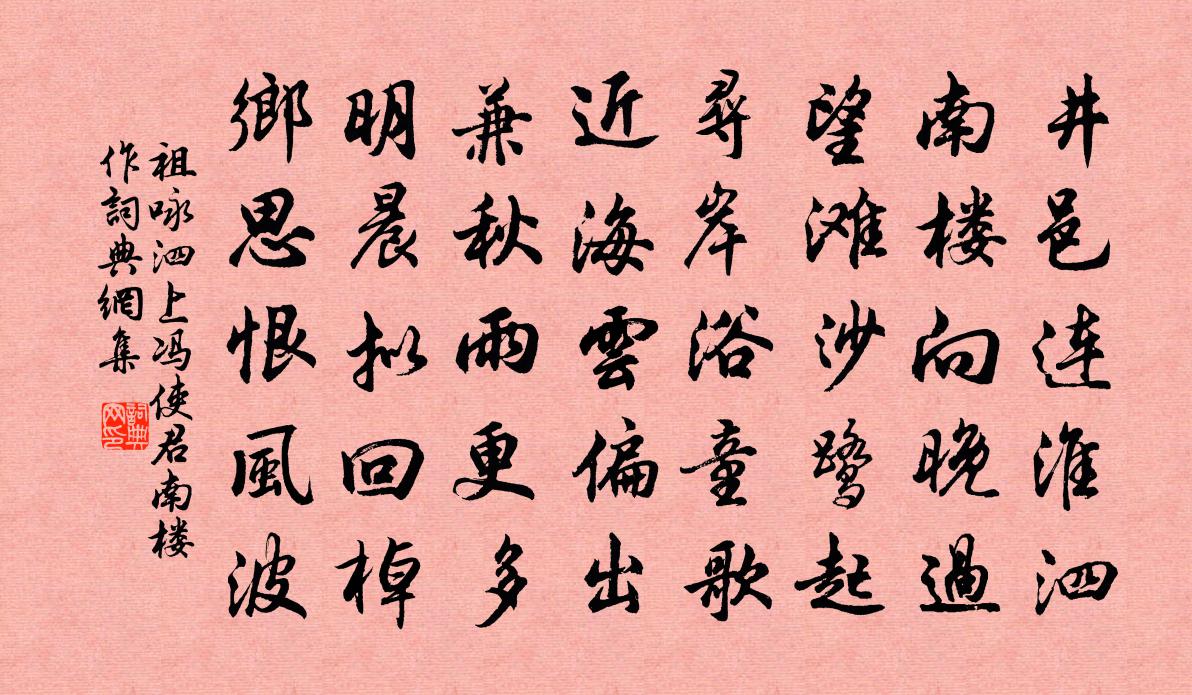 井邑连淮泗
南楼向晚過
望滩沙鹭起
尋岸浴童歌
近海雲偏出
兼秋雨更多
明晨拟回棹
鄉思恨風波
祖咏泗上冯使君南楼
作詞典網集
詞典
网印